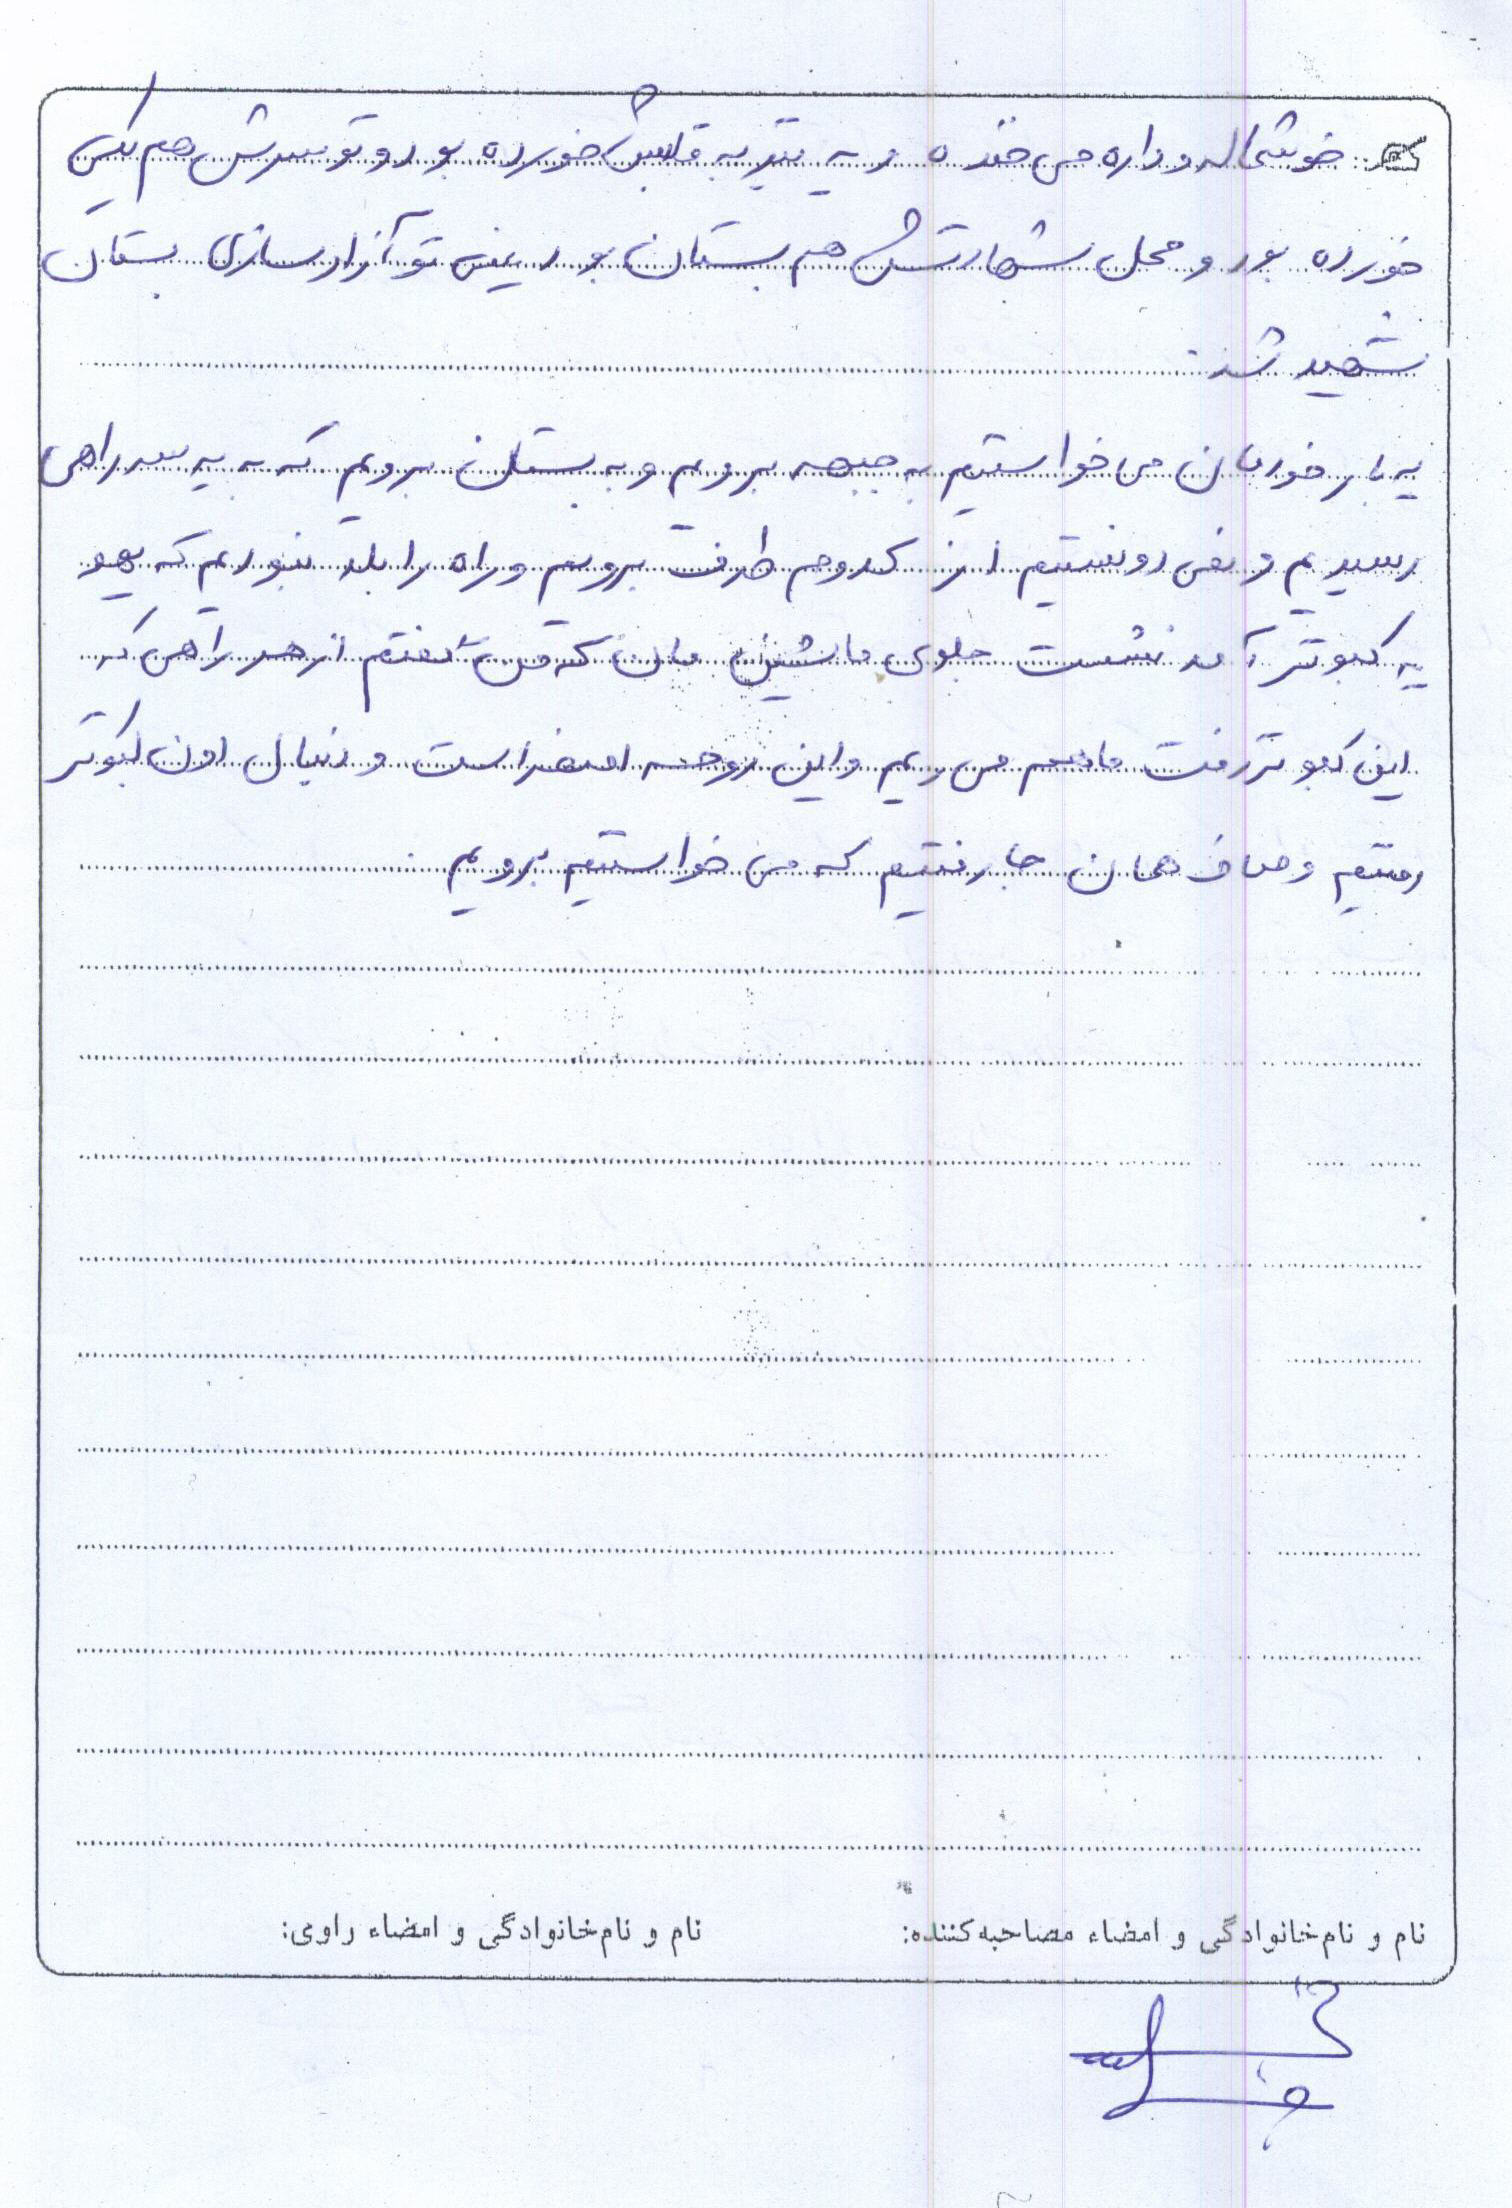 خوشحاله و داره می خنده و یه تیر به قلبش خورده بود و تو سرش هم یکی
خورده بود و محل شهادتش هم بستان بود یعنی تو آزادسازی بستان
شهید شد.
یه بار خودمان می خواستیم به جبهه برویم و به بستان برویم که به یه سه راهی
رسیدیم و نمی دونستیم از کدوم طرف برویم و راه را بلد نبودیم که یهو
یه کبوتر آمد نشست جلوی ماشین مان که من گفتم از هر راهی که
این کبوتر رفت ما هم می ریم و این روح اصغر است و دنبال اون کبوتر
رفتیم و صاف همان جا رفتیم که می خواستیم برویم.
نام و نام‌خانوادگی و امضاء مصاحبه‌کننده: نام و نام‌خانوادگی و امضاء راوی: